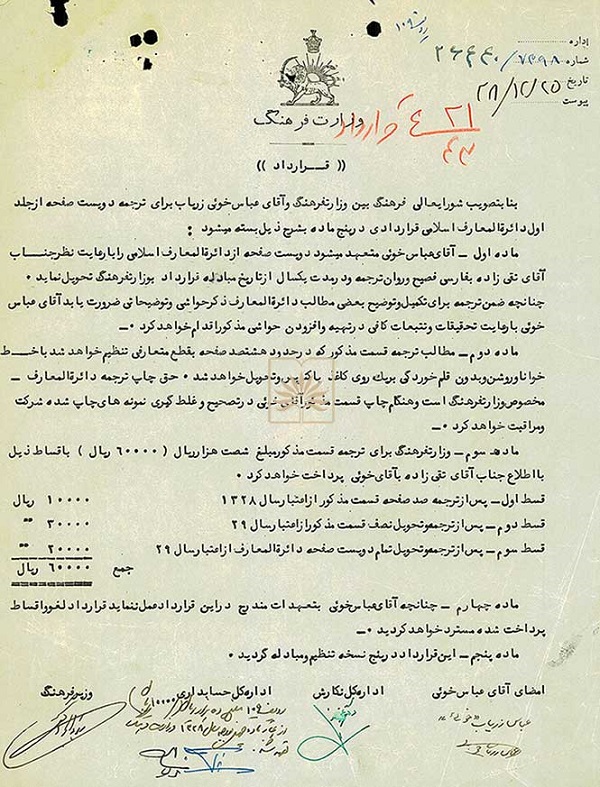 اداره
شماره ۲۶۴۴۰/۷۳۹۸
تاریخ ۲۸/۱۲/۲۵
پیوست
وزارت فرهنگ
۲۱
۴۳
(( قـرارداد ))
بنا بتصویب شورایعالی فرهنگ بین وزارتفرهنگ وآقای عباس خوئی زریاب برای ترجمه دویست صفحه از جلد
اول دائرةالمعارف اسلامی قراردادی در پنج ماده بشرح ذیل بسته میشود :
ماده اول – آقای عباس خوئی متعهد میشود دویست صفحه از دائرةالمعارف اسلامی را با رعایت نظر جناب
آقای تقی زاده بفارسی فصیح وروان ترجمه ودر مدت یکسال از تاریخ مبادله قرارداد بوزارتفرهنگ تحویل نماید ۰
چنانچه ضمن ترجمه برای تکمیل وتوضیح بعضی مطالب دائرةالمعارف ذکر حواشی وتوضیحاتی ضرورت یابد آقای عباس
خوئی با رعایت تحقیقات وتتبعات کافی در تهیه وافزودن حواشی مذکور اقدام خواهد کرد ۰–
ماده دوم – مطالب ترجمه قسمت مذکور که در حدود هشتصد صفحه بقطع متعارفی تنظیم خواهد شد با خط
خوانا وروشن وبدون قلم خوردگی بریک روی کاغذ پاکنویس وتحویل خواهد شد ۰ حق چاپ ترجمه دائرةالمعارف –
مخصوص وزارتفرهنگ است وهنگام چاپ قسمت مذکور آقای خوئی در تصحیح و غلط گیری نمونه های چاپ شده شرکت
ومراقبت خواهد کرد ۰–
ماده سوم – وزارتفرهنگ برای ترجمه قسمت مذکور مبلغ شصت هزار ریال ( ۶۰۰۰۰ ریال ) باقساط ذیل
با اطلاع جناب آقای تقی زاده بآقای خوئی پرداخت خواهد کرد ۰
قسط اول – پس از ترجمه صد صفحه قسمت مذکور از اعتبار سال ۱۳۲۸ ۱۰۰۰۰ ریال
قسط دوم – پس از ترجمه وتحویل نصف قسمت مذکور از اعتبار سال ۲۹ ۳۰۰۰۰ "
قسط سوم – پس از ترجمه وتحویل تمام دویست صفحه دائرةالمعارف از اعتبار سال ۲۹ ۲۰۰۰۰ "
جمع ۶۰۰۰۰ ریال
ماده چهارم – چنانچه آقای عباس خوئی بتعهدات مندرج در این قرارداد عمل ننماید قرارداد لغو واقساط
پرداخت شده مسترد خواهد گردید ۰–
ماده پنجم – این قرارداد در پنج نسخه تنظیم ومبادله گردید ۰
امضای آقای عباس خوئی اداره کل نگارش اداره کل حسابداری وزیر فرهنگ
عباس زریاب خوئی